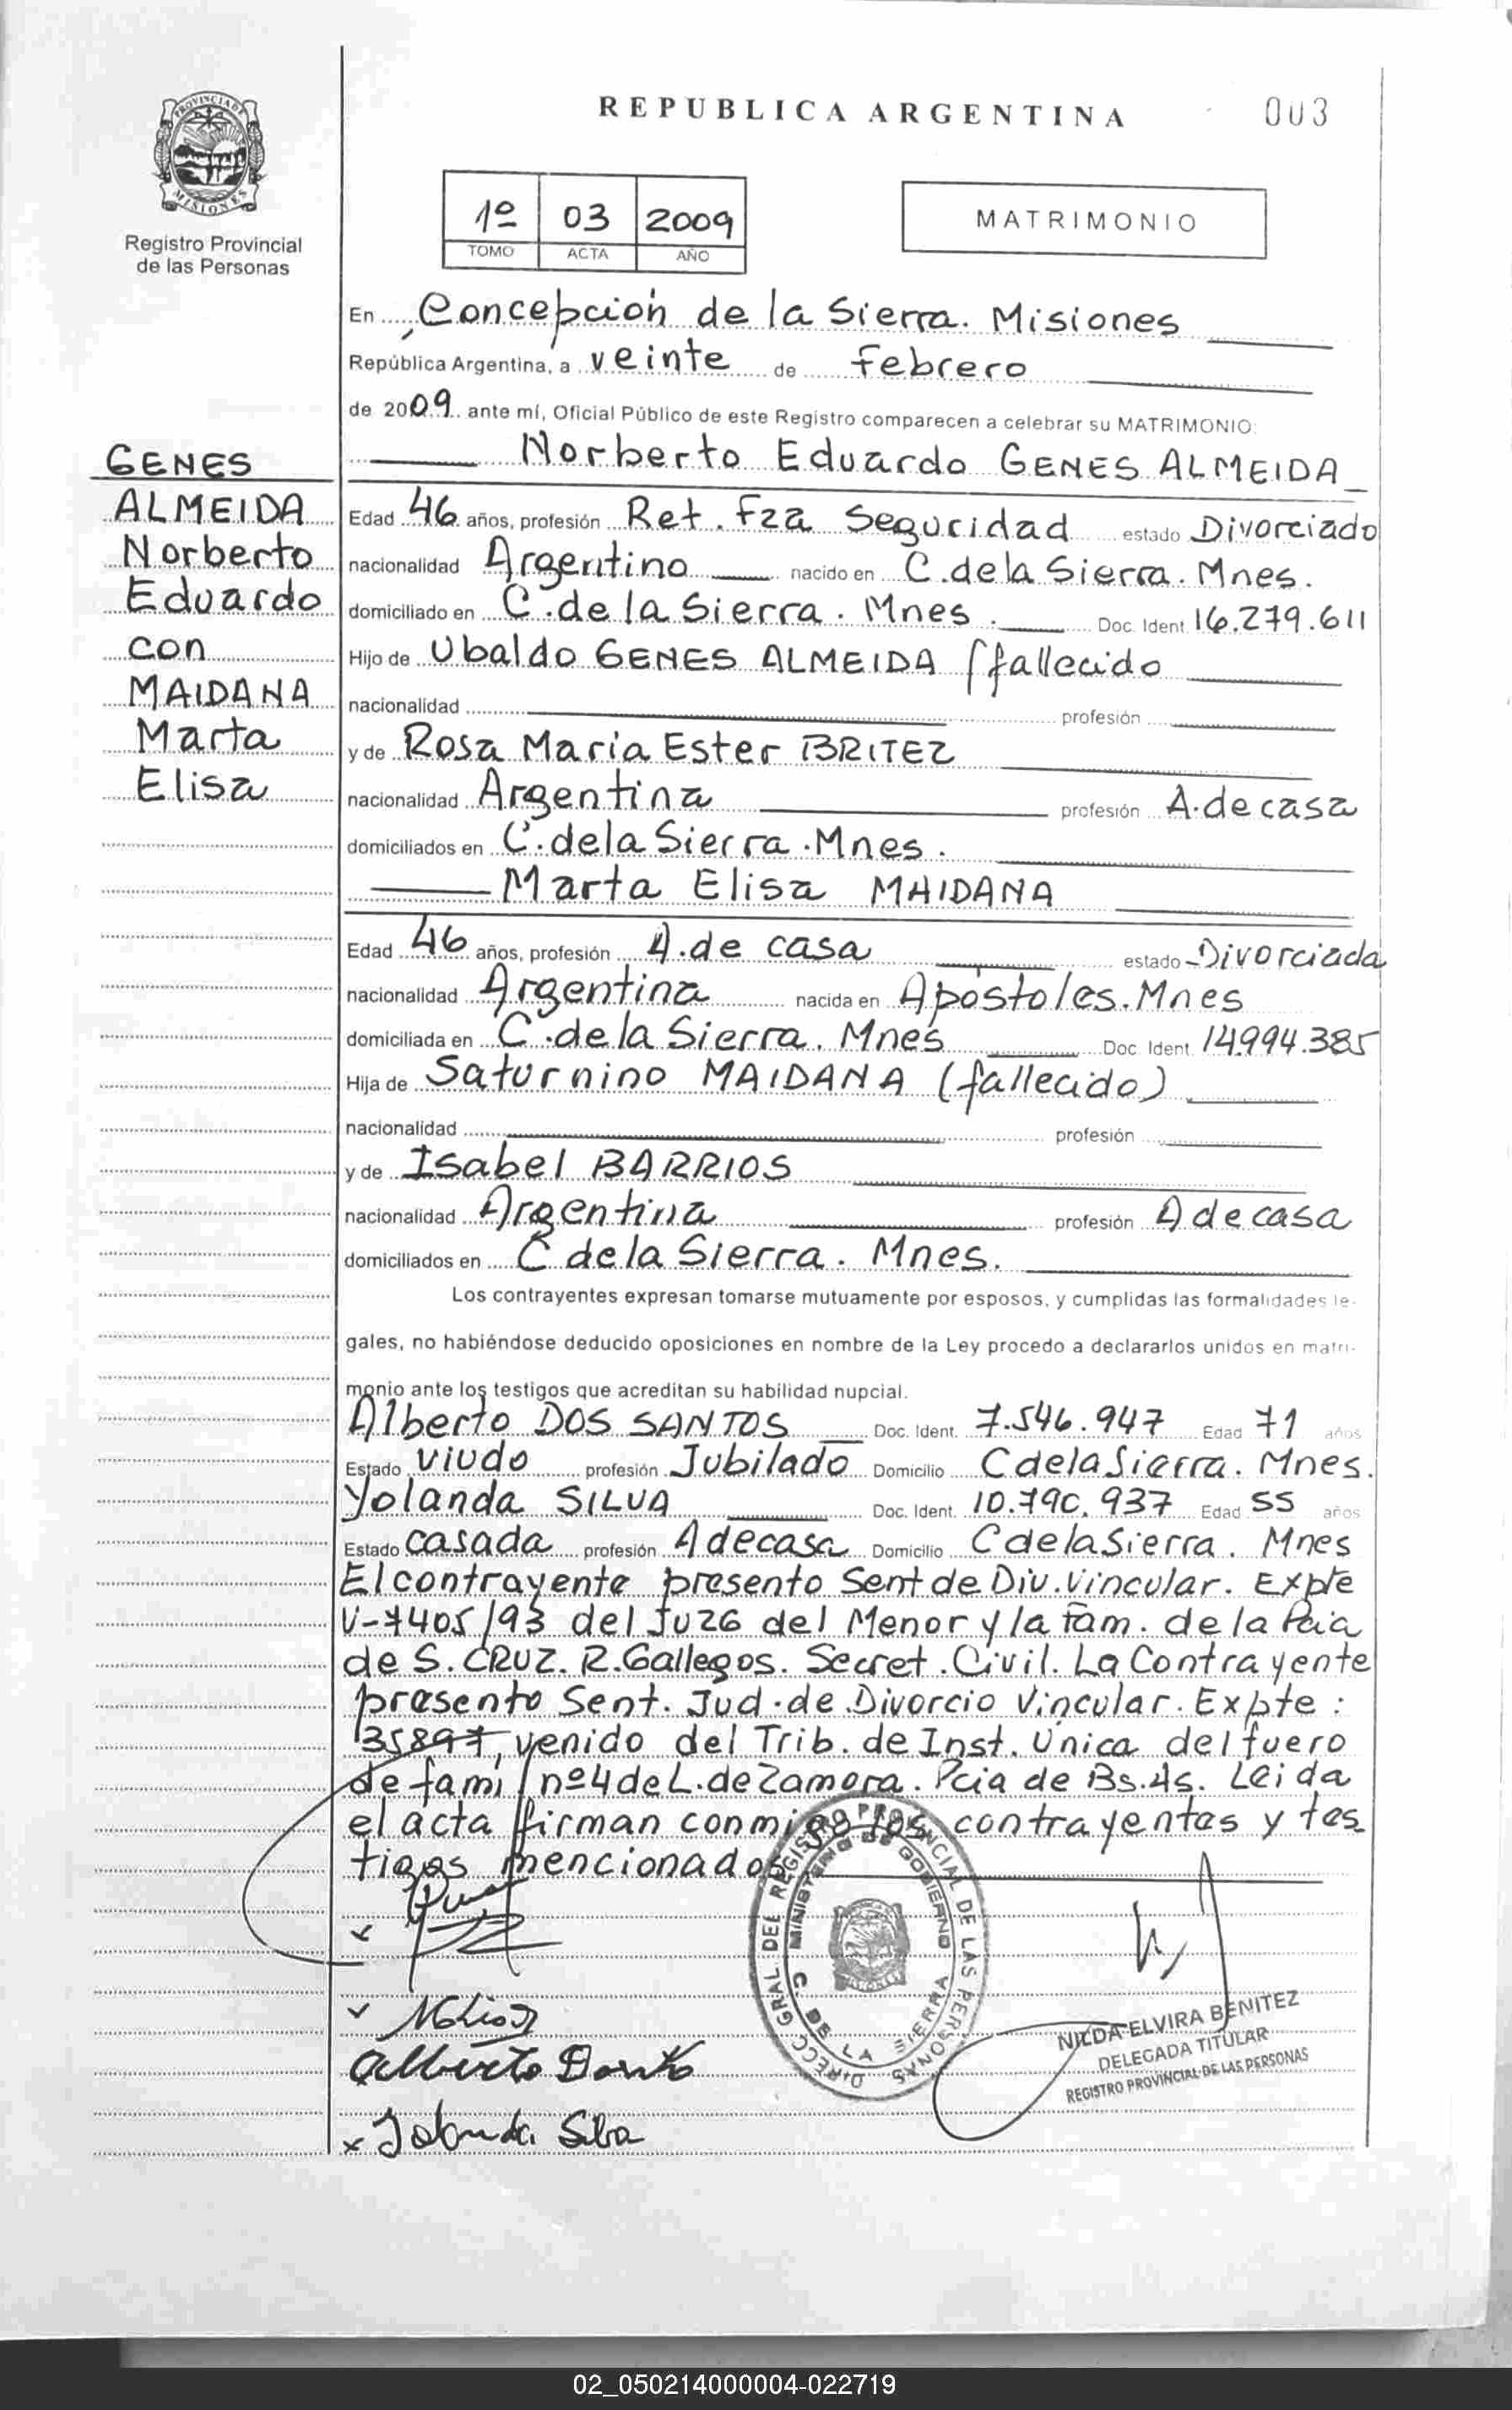 REPUBLICA ARGENTINA
003
PROVINCIA DE MISIONES
Registro Provincial
de las Personas
1º 03 2009
TOMO ACTA AÑO
MATRIMONIO
En Concepción de la Sierra. Misiones
República Argentina, a veinte de Febrero
de 2009 ante mí, Oficial Público de este Registro comparecen a celebrar su MATRIMONIO:
Norberto Eduardo GENES ALMEIDA
GENES
ALMEIDA
Norberto
Eduardo
con
MAIDANA
Marta
Elisa
Edad 46 años, profesión Ret. Fza Seguridad estado Divorciado
nacionalidad Argentino nacido en C. de la Sierra. Mnes.
domiciliado en C. de la Sierra. Mnes. Doc. Ident. 16.279.611
Hijo de Ubaldo GENES ALMEIDA (fallecido
nacionalidad profesión
y de Rosa Maria Ester BRITEZ
nacionalidad Argentina profesión A. de casa
domiciliados en C. de la Sierra. Mnes.
Marta Elisa MAIDANA
Edad 46 años, profesión A. de casa estado Divorciada
nacionalidad Argentina nacida en Apóstoles. Mnes
domiciliada en C. de la Sierra. Mnes Doc. Ident. 14.994.385
Hija de Saturnino MAIDANA (fallecido)
nacionalidad profesión
y de Isabel BARRIOS
nacionalidad Argentina profesión A de casa
domiciliados en C de la Sierra. Mnes.
Los contrayentes expresan tomarse mutuamente por esposos, y cumplidas las formalidades le-
gales, no habiéndose deducido oposiciones en nombre de la Ley procedo a declararlos unidos en matri-
monio ante los testigos que acreditan su habilidad nupcial.
Alberto DOS SANTOS Doc. Ident. 7.546.947 Edad 71 años
Estado Viudo profesión Jubilado Domicilio C de la Sierra. Mnes.
Yolanda SILVA Doc. Ident. 10.790.937 Edad 55 años
Estado casada profesión A de casa Domicilio C de la Sierra. Mnes
El contrayente presento Sent de Div. Vincular. Expte
V-7405/93 del Juzg del Menor y la Fam. de la Pcia
de S. CRUZ. R. Gallegos. Secret. Civil. La Contrayente
presento Sent. Jud. de Divorcio Vincular. Expte:
35897, venido del Trib. de Inst. Unica del fuero
de fami nº4 de L. de Zamora. Pcia de Bs. As. Leida
el acta firman conmigo los contrayentes y tes
tigos mencionados
DIRECC GRAL. DEL REGISTRO PROVINCIAL DE LAS PERSONAS
MINISTERIO DE GOBIERNO
C. DE LA SIERRA
Yolanda Silva
NILDA ELVIRA BENITEZ
DELEGADA TITULAR
REGISTRO PROVINCIAL DE LAS PERSONAS
02_050214000004-022719